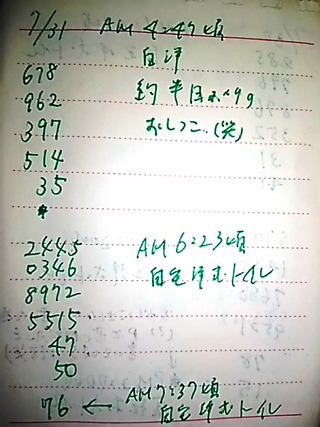 7/31 AM 4:47頃
自洋
678
962 約半日
397 おしっこ..(笑)
514
35
*
2445 AM 6:23頃
0346 自宅洋式トイレ
8972
5515
47
50
76 ← AM7:37頃
自宅洋式トイレ